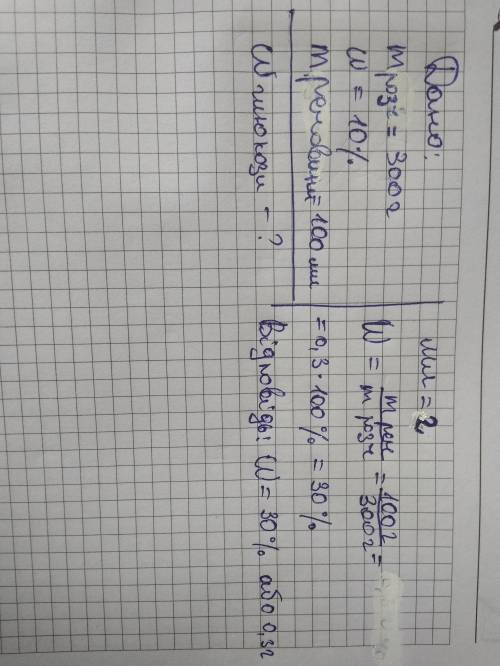 Дано:
m розч = 300г
W = 10%
m речовини = 100 мл
W глюкози - ?
мл = г
W = m реч / m розч = 100г / 300г =
= 0,3 · 100% = 30%
Відповідь: W = 30% або 0,3г